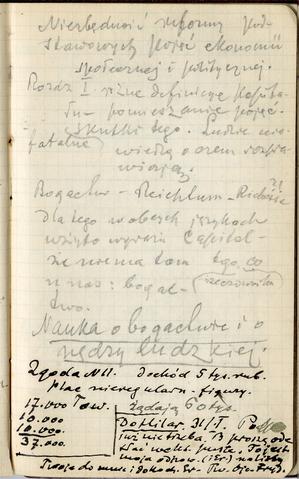 Niezbędność reformy pod-
stawowych pojęć ekonomii
społecznej i politycznej.
Rozdz I różne definicye kapita-
łu – pomieszanie pojęć.
Skutki tego. Ludzie nie
fatalne wiedzą o czem rozpra-
wiają.
Bogactwo – Reichtum – Richesse ?!
Dla tego w obcych językach
wzięto wyraz Capital –
że nie ma tam tego, co
u nas: bogac- rzeczownika
two.
Nauka o bogactwie i o
nędzy ludzkiej.
Zgoda N11. Dochód 5 tys. rub.
plac nieregularn. figury.
17.000 Tow. żądają 60 tys.
10.000
10.000
37.000.
już nie trzeba, proszę ode-
słać
moja odpow.